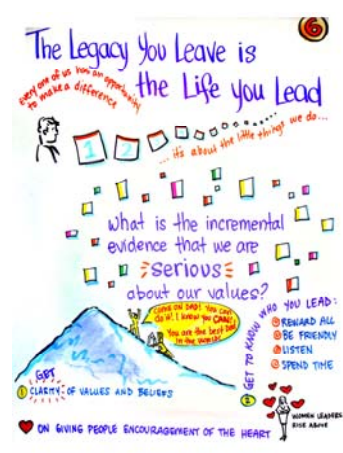 6
The Legacy You Leave is
the Life You Lead
every one of us has an opportunity
to make a difference
1 2
... it's about the little things we do...
What is the incremental
evidence that we are
serious
about our values?
COME ON DAD! YOU CAN
do it! I know you CAN!
You are the best Dad
in the world!
GET
1 CLARITY OF VALUES AND BELIEFS
2 GET TO KNOW WHO YOU LEAD:
REWARD ALL
BE FRIENDLY
LISTEN
SPEND TIME
WOMEN LEADERS
RISE ABOVE
ON GIVING PEOPLE ENCOURAGEMENT OF THE HEART